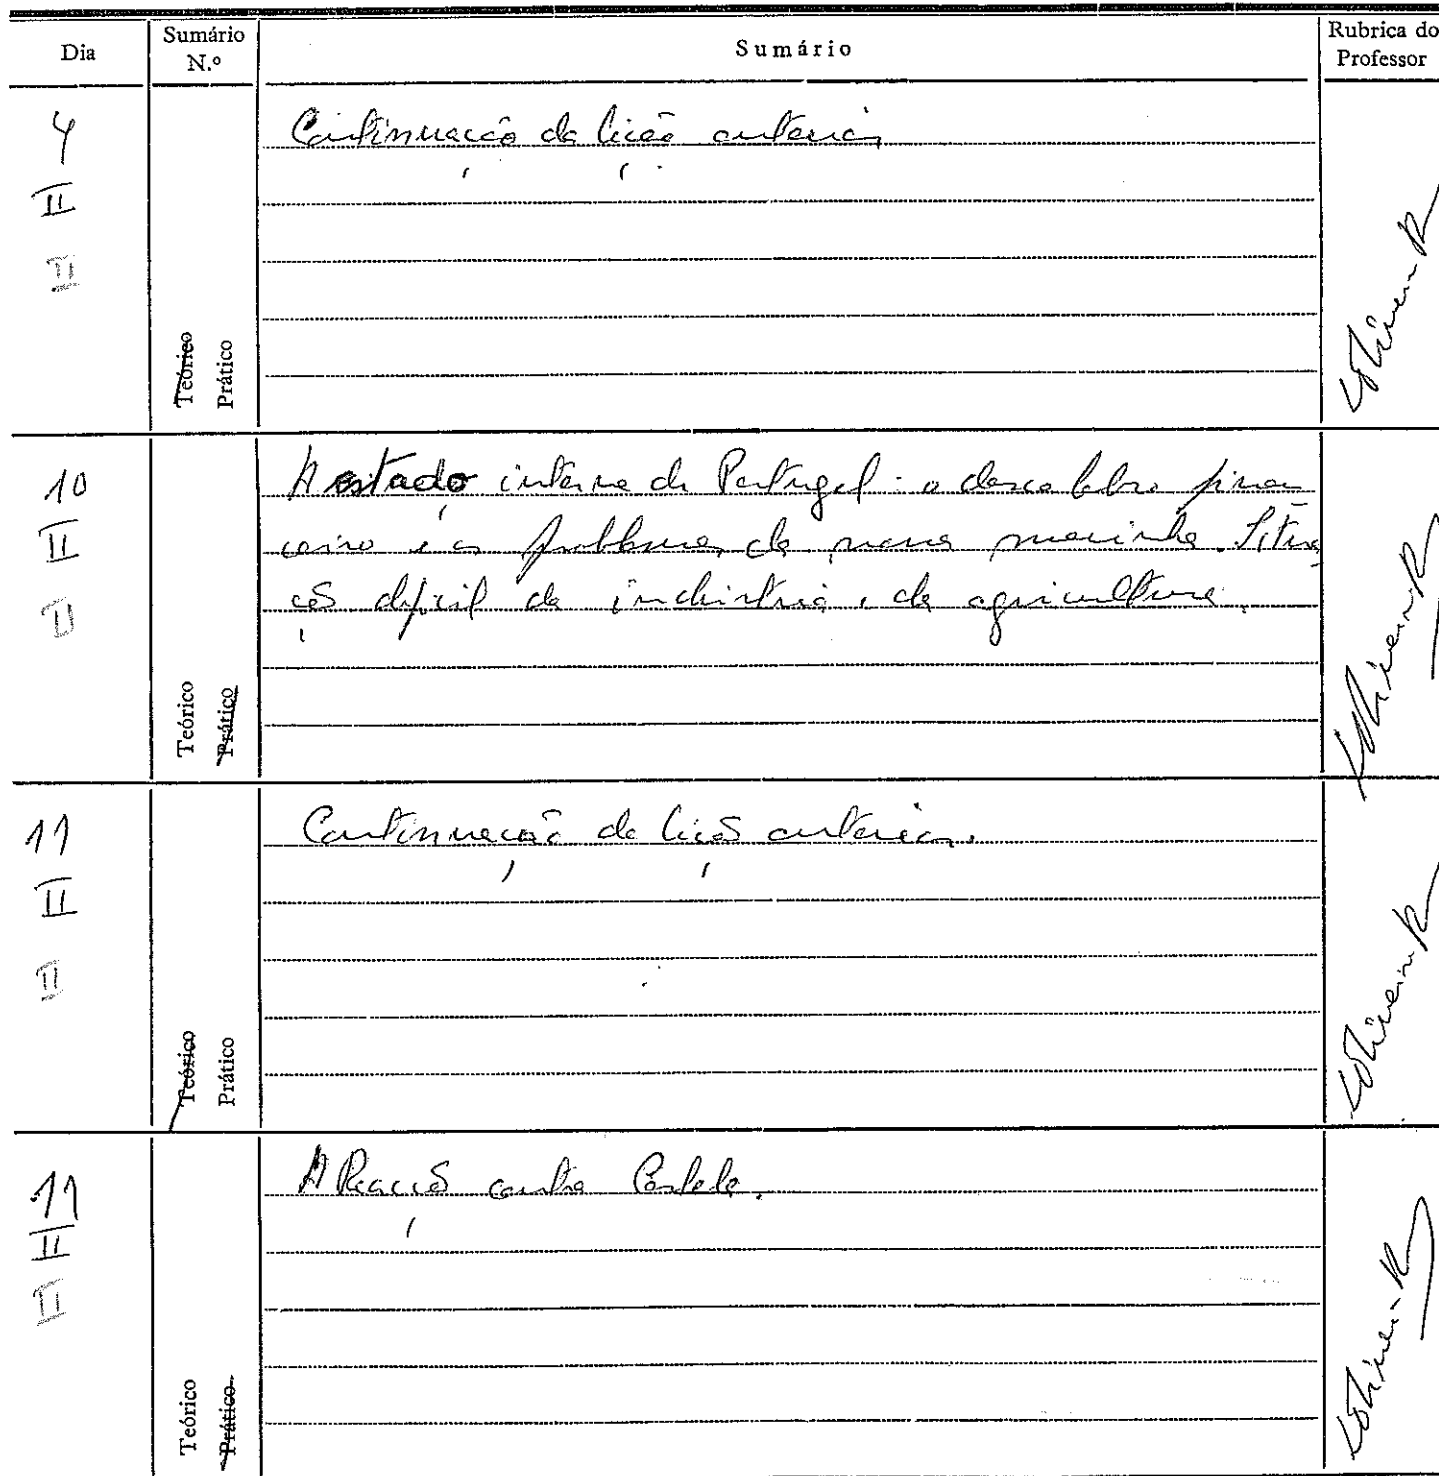 Dia
Sumário N.º
Sumário
Rubrica do Professor
4
II
II
Teórico
Prático
Continuação da lição anterior
10
II
II
Teórico
Prático
A estado interno de Portugal: o descalabro finan
ceiro e os problemas da nossa marinha. Situa
ção difícil da indústria e da agricultura.
11
II
II
Teórico
Prático
Continuação da lição anterior.
11
II
II
Teórico
Prático
A Reacção contra Castela.